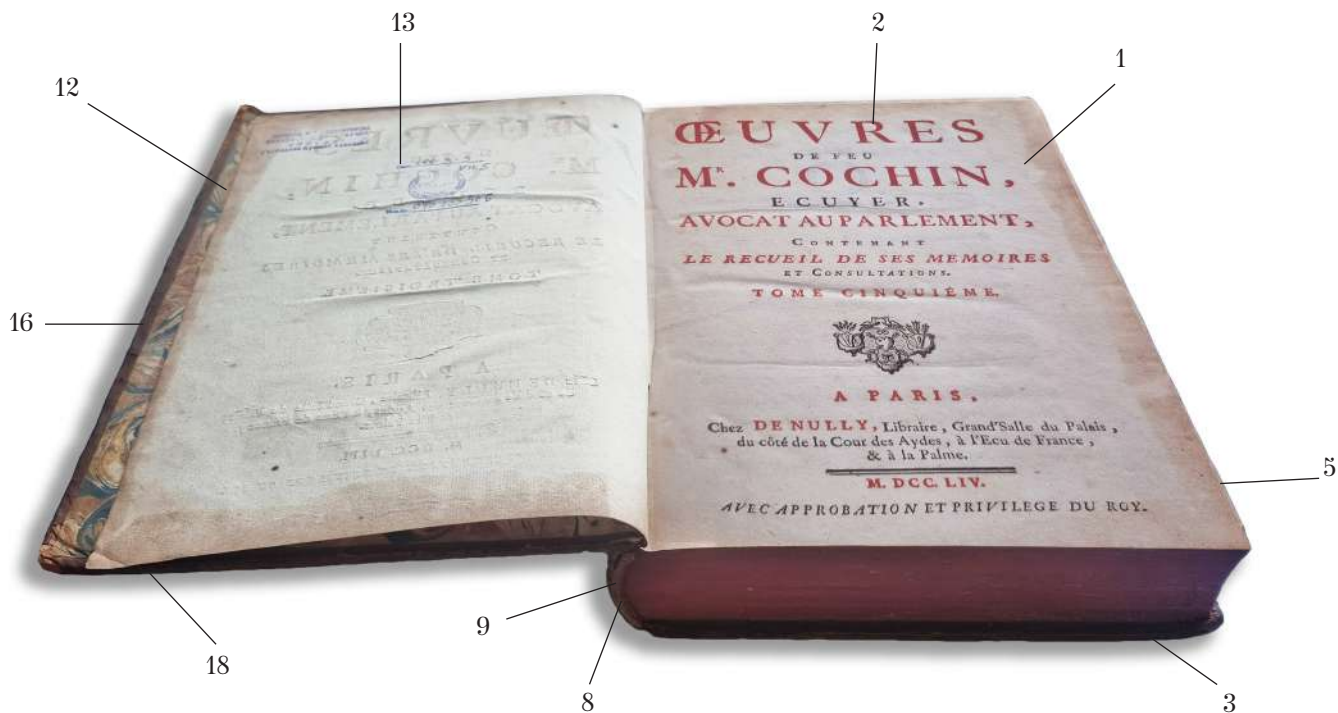 13
2
1
12
16
5
9
18
8
3
ŒUVRES
DE FEU
Mʀ. COCHIN,
ECUYER.
AVOCAT AU PARLEMENT,
CONTENANT
LE RECUEIL DE SES MEMOIRES
ET CONSULTATIONS.
TOME CINQUIÉME.
A PARIS,
Chez DE NULLY, Libraire, Grand'Salle du Palais,
du côté de la Cour des Aydes, à l'Ecu de France,
& à la Palme.
M. DCC. LIV.
AVEC APPROBATION ET PRIVILEGE DU ROY.